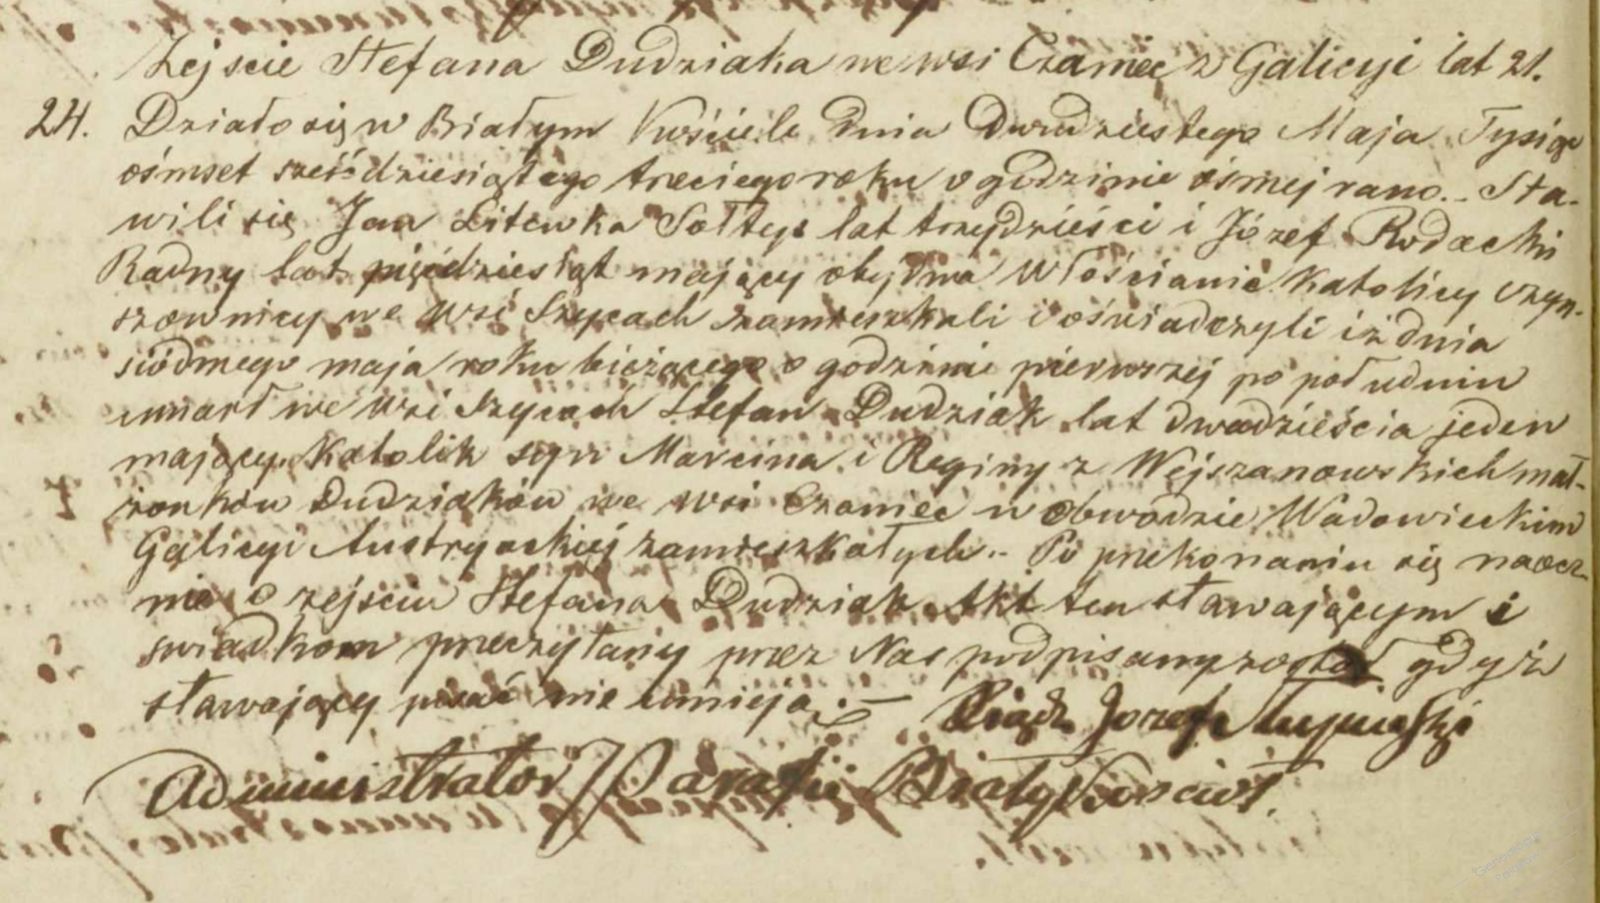 Zejscie Stefana Dudziaka we wsi Czaniec z Galicyi lat 21.
24. Działo się w Białym Kościele dnia Dwudziestego Maja Tysiąc
ośmset sześćdziesiątego trzeciego roku o godzinie ósmej rano.- Sta-
wili się Jan Litewka Sołtys lat trzydzieści i Józef Rodacki
Radny lat pięćdziesiąt mający obydwa Włościanie Katolicy czyn-
szownicy we wsi Szycach zamieszkali i oświadczyli iż dnia
siódmego maja roku bieżącego o godzinie pierwszej po południu
umarł we wsi Szycach Stefan Dudziak lat dwadzieścia jeden
mający, Katolik syn Marcina i Reginy z Wejszanowskich mał-
żonków Dudziaków we wsi Czaniec w Obwodzie Wadowieckim
Galicyi Austryackiej zamieszkałych.- Po przekonaniu się naocz-
nie o zejściu Stefana Dudziak Akt ten stawającym i
swiadkom przeczytany przez Nas podpisany został gdyż
stawający pisać nie umieją.-
Ksiądz Józef
Administrator Parafii Biały Kościół.